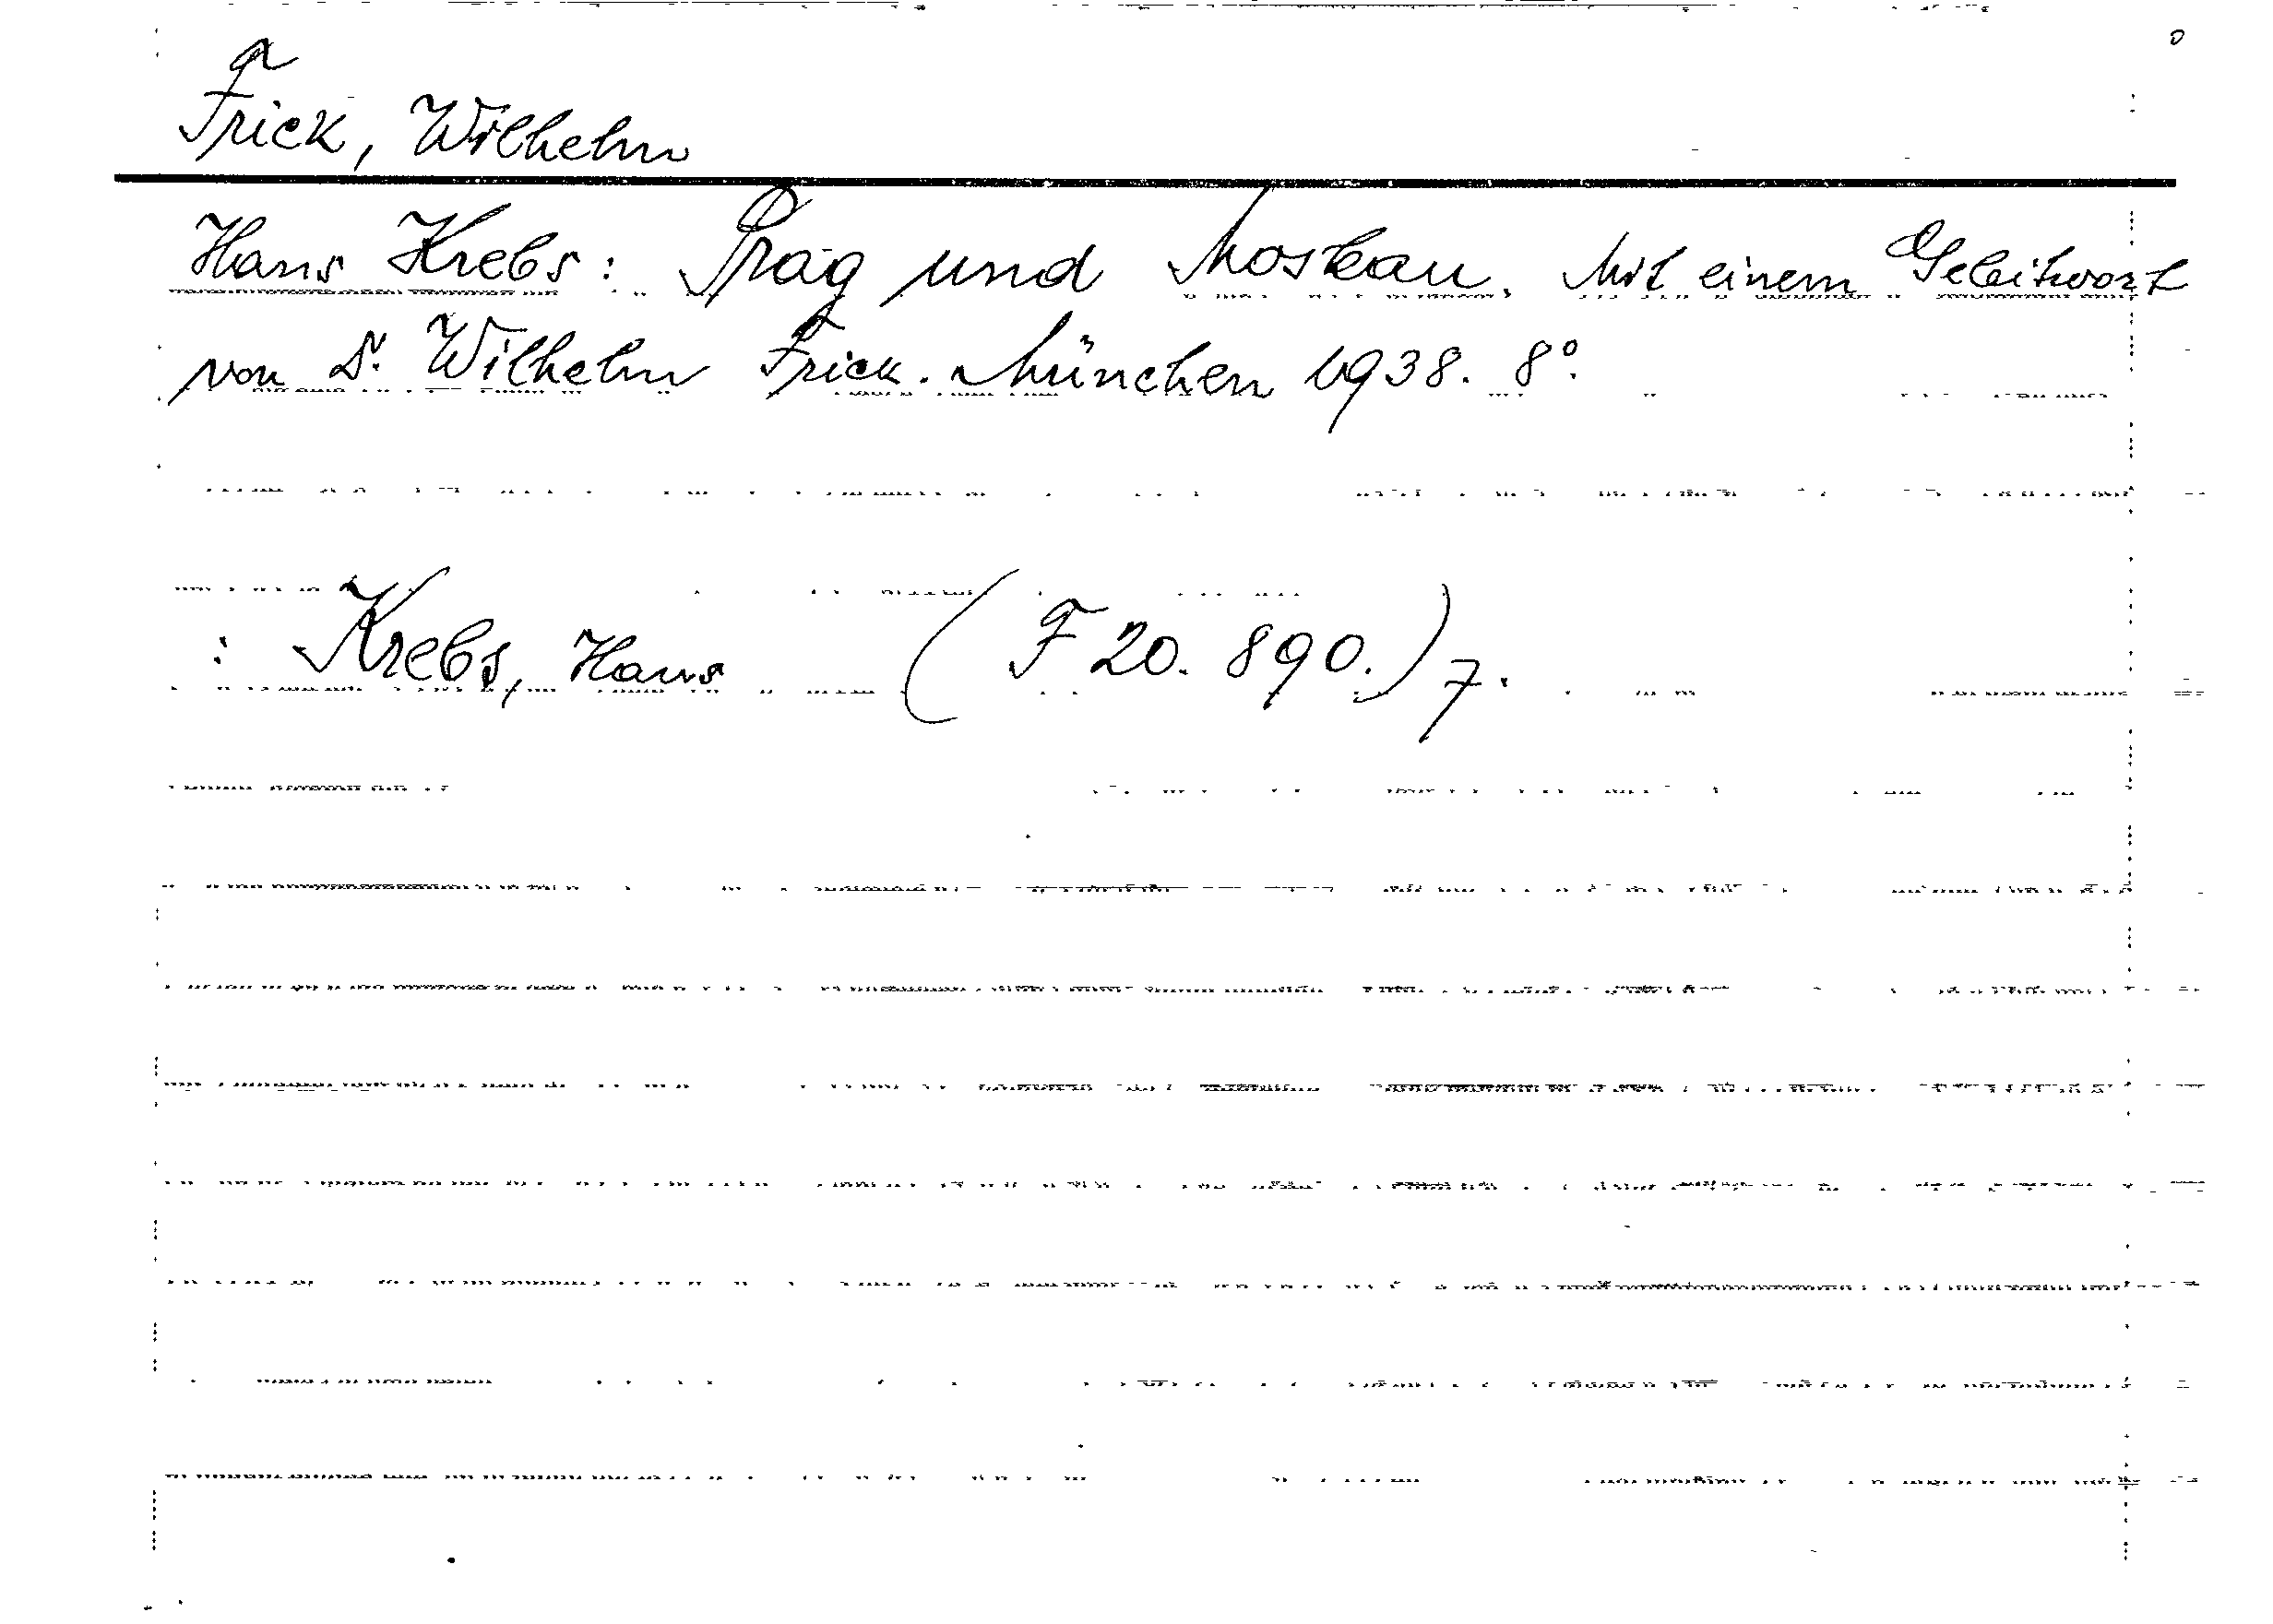 Frick, Wilhelm
Hans Krebs: Prag und Moskau. Mit einem Geleitwort
von Dr. Wilhelm Frick. München 1938. 8°.
: Krebs, Hans (F 20. 890.) 7.